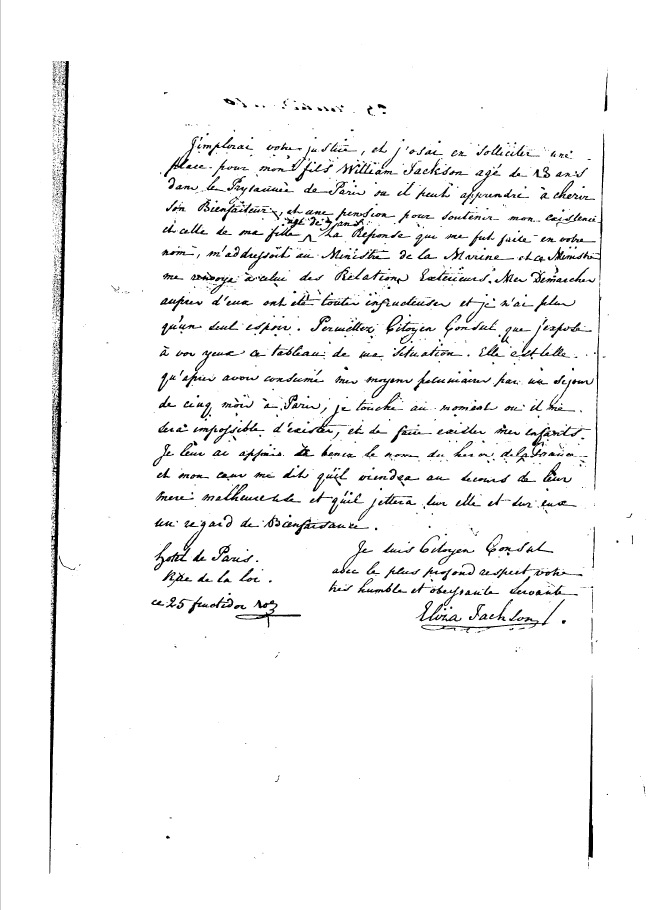 J'implorai votre justice, et j'osai en solliciter une
place pour mon fils William Jackson agé de 13 ans
dans le Prytannée de Paris ou il peut apprendre à cherir
Son Bienfaiteur, et une pension pour soutenir mon existence
et celle de ma fille agé de 7 ans La Réponse qui me fut faite en votre
nom, m'addressoit au Ministre de la Marine et ce Ministre
me renvoya à celui des Relations Exterieurs. Mes Démarches
auprès d'eux ont été toutes infructueuses et je n'ai plus
qu'un seul espoir. Permettez Citoyen Consul que j'expose
à vos yeux ce tableau de ma Situation. Elle est telle
qu'après avoir consumé mes moyens pécuniaires par un Sejour
de cinq mois à Paris, je touche au moment ou il me
sera impossible d'exister, et de faire exister mes enfants.
Je leur ai appris à benir le nom du heros de la France
et mon cœur me dit qu'il viendra au secours de leur
mere malheureuse et qu'il jettera sur elle et sur eux
un regard de Bienfaisance.
Je suis Citoyen Consul
avec le plus profond respect votre
très humble et obeissante servante
Eliza Jackson
hotel de Paris.
Rue de la loi.
ce 25 fructidor